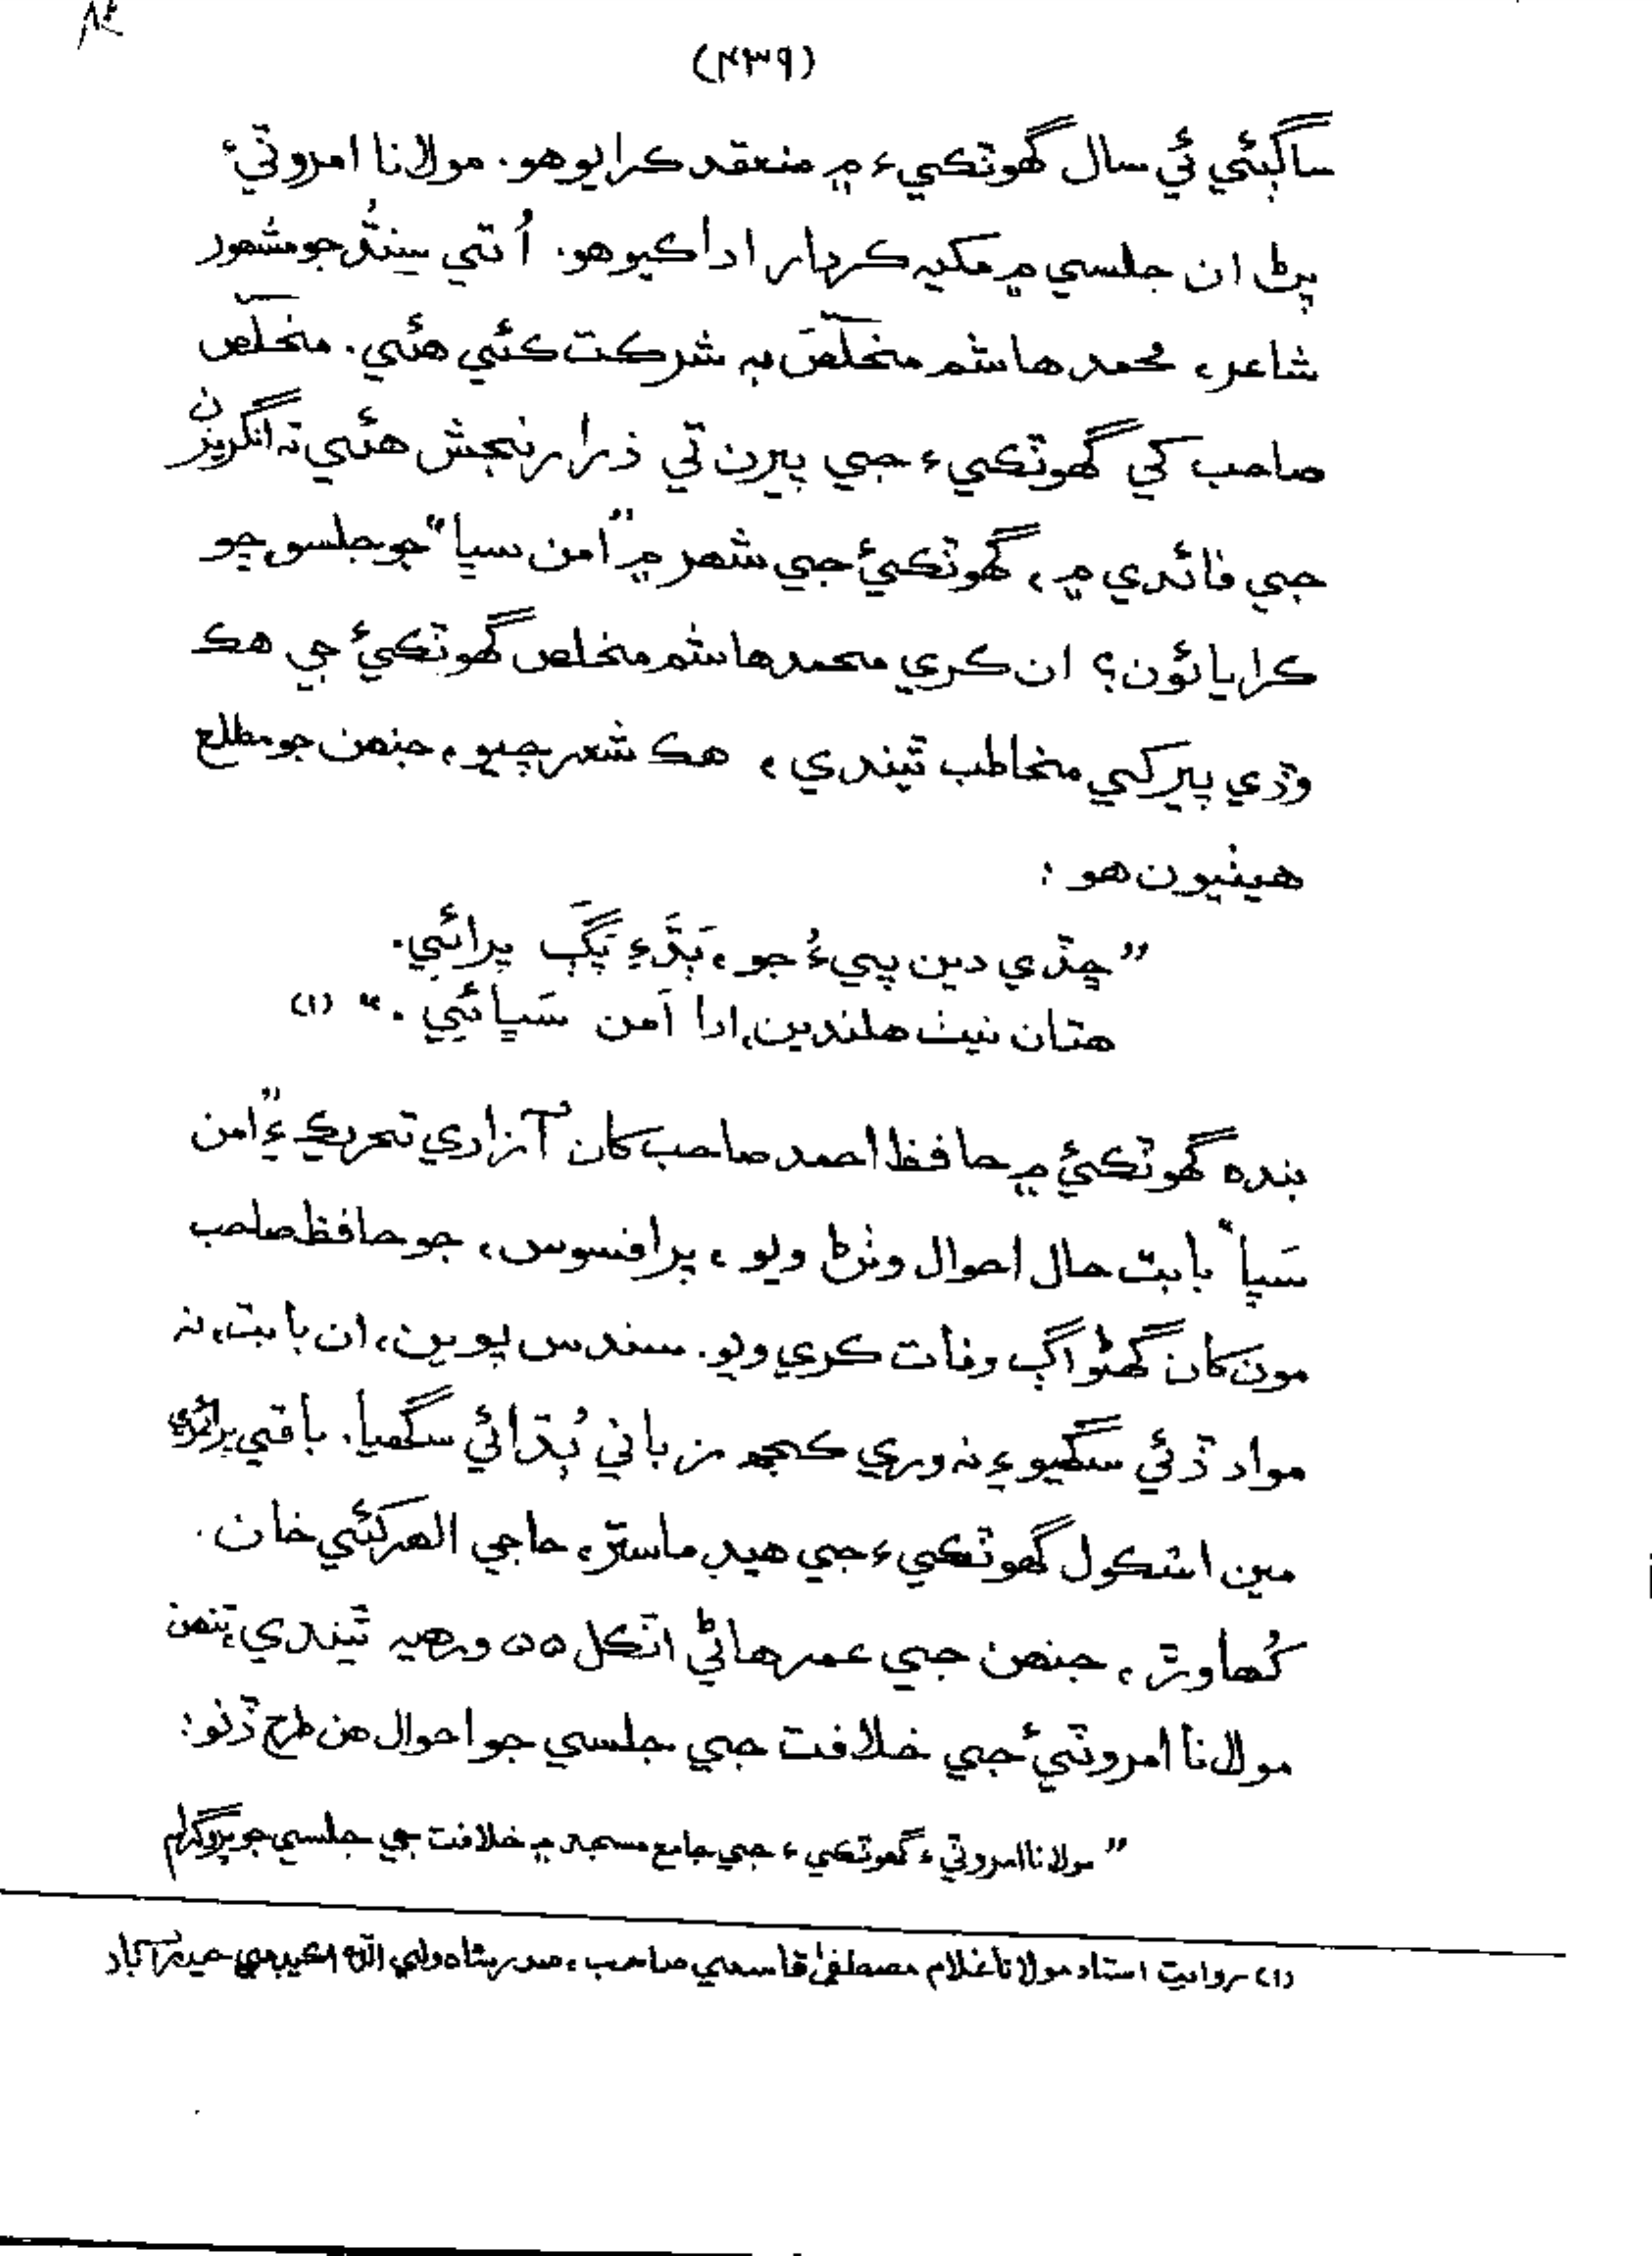 (۴۳۹)
ساڳيئي ئي سال گھوٽڪيءَ ۾ منعقد ڪرايو هو. مولانا امروٽيءَ
پڻ ان جلسي ۾ مکيه ڪردار ادا ڪيو هو. اُتي سِنڌُ جو مشهور
شاعر، محمد هاشم مخلصَ به شرڪت ڪئي هئي. مخلص
صاحب کي گھوٽڪيءَ جي پيرن تي ذرا رنجش هئي ته انگريزن
جي فائدي ۾، گھوٽڪيءَ جي شهر ۾ ”امن سڀا“ جو جلسو ڇو
ڪرايائون؟ ان ڪري محمد هاشم مخلص گھوٽڪيءَ جي هڪ
وڏي پير کي مخاطب ٿيندي، هڪ شعر چيو، جنهن جو مطلع
هيئيون هو :
”ڇڏي دين پيءُ جو، ٻَڌَءِ پَڳَ پرائي.
هتان نيٺ هلندين، ادا اَمن سَڀائي.“ (۱)
بنده گھوٽڪيءَ ۾ حافظ احمد صاحب کان آزادي تحريڪ ۽ ”امن
سَڀا“ بابت حال احوال وٺڻ ويو، پر افسوس، جو حافظ صاحب
مون کان گھڻو اڳ وفات ڪري ويو. سندس پوين، ان بابت، نه
مواد ڏئي سگھيو ۽ نه وري ڪجھ زباني ٻُڌائي سگھيا. باقي پرائمري
مين اسڪول گھوٽڪيءَ جي هيڊ ماستر، حاجي الهرکئي خان
کُهاوڙ، جنهن جي عمر هاڻي اٽڪل ۵۵ ورهيه ٿيندي، تنهن
مولانا امروٽيءَ جي خلافت جي جلسي جو احوال هن طرح ڏنو:
”مولانا امروٽيءَ گھوٽڪيءَ جي جامع مسجد ۾ خلافت جي جلسي جو پروگرام
(۱) روايت استاد مولانا غلام مصطفيٰ قاسمي صاحب، صدر شاه ولي الله اڪيڊمي حيدرآباد